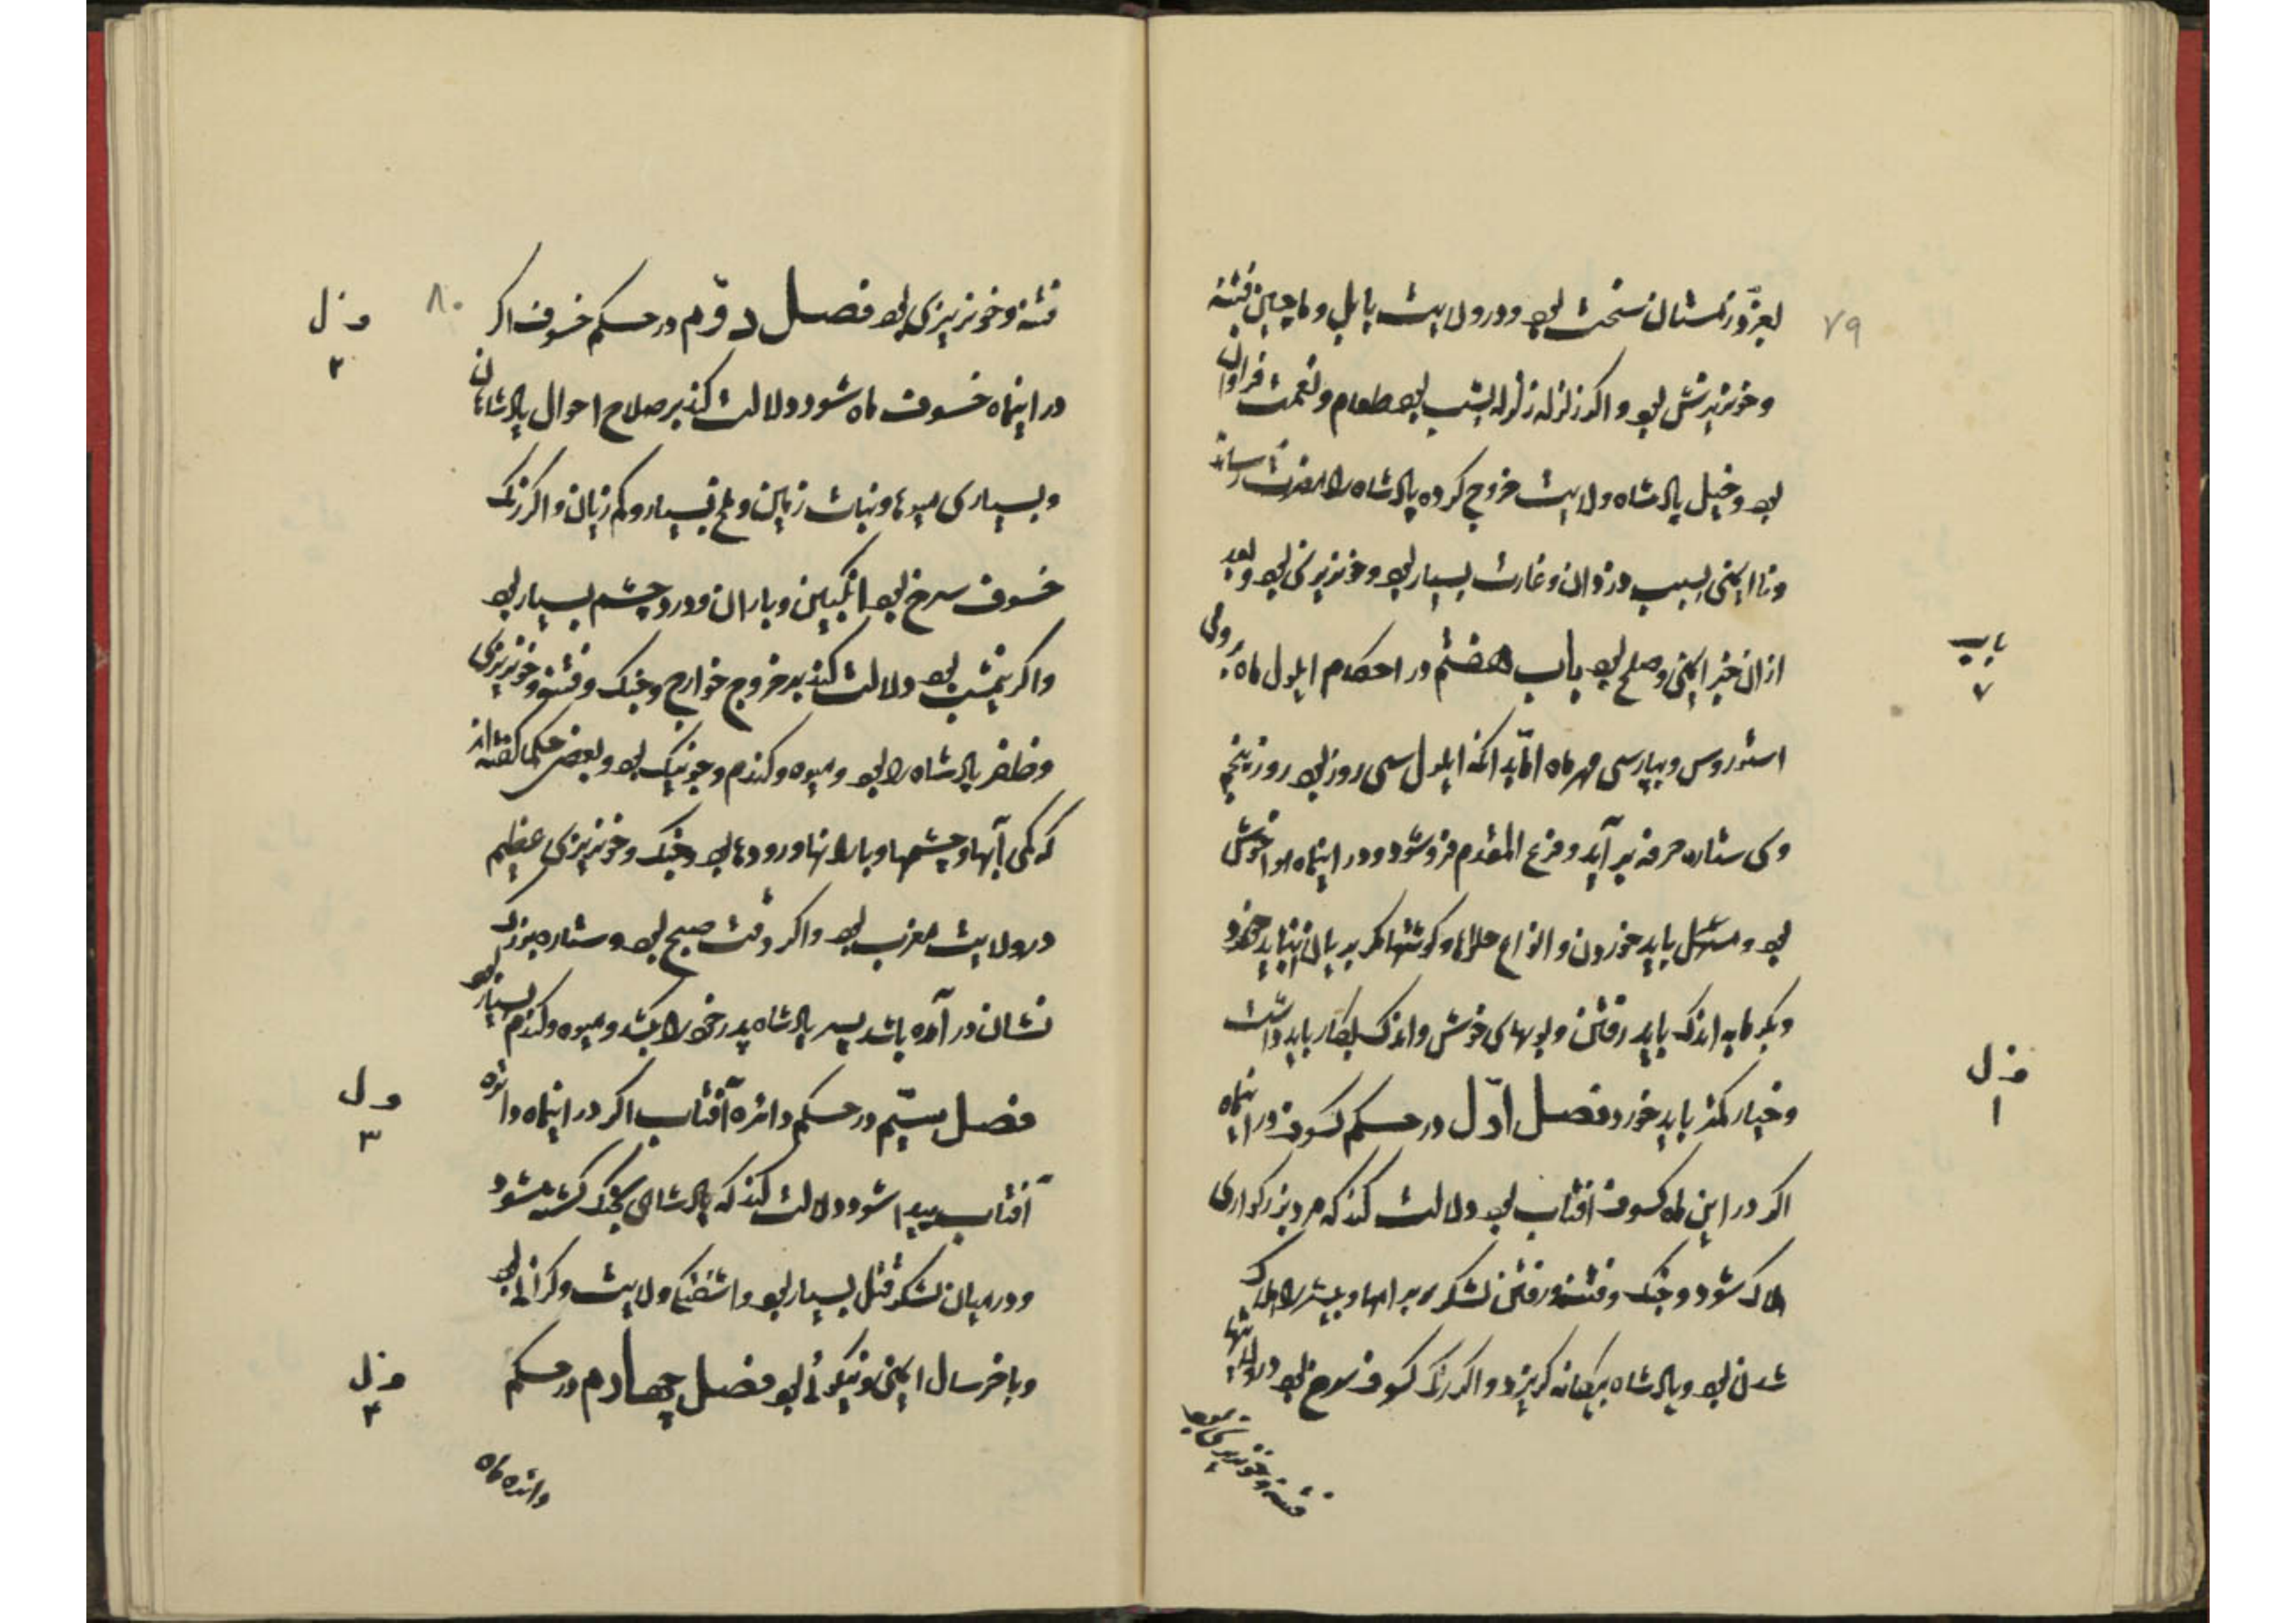 ۷۹
لعزّ و زمستان سخت بود و در ولایت بابل و ماچین فتنه
و خونریزش بود و اگر زلزله زلزله بشب بود طعام و نعمت فراوان
بود و خیل پادشاه ولایت خروج کرده پادشاه را مضرت رساند
و نا ایمنی بسبب دزدان و غارت بسیار بود و خونریزی بود و بعد
از ان خیر ایمنی و صلح بود باب هفتم در احکام ایلول ماه رومی
باب ۷
و بپارسی مهر ماه امّا بدانکه ایلول سی روز بود روز پنجم
وی ستاره صرفه بر آید و فرغ المقدم فرو شود و در اینماه هوا خوش
بود و مسهل باید خوردن و انواع حلواها و گوشتها مگر بریان نباید خورد
و بگرمابه اندک باید رفتن و بویهای خوش و اندک بکار باید داشت
و خیار کمتر باید خورد فصل اوّل در حکم کسوف در اینماه
فصل ۱
اگر در این ماه کسوف افتاب بود دلالت کند که مرد بزرگواری
هلاک شود و جنک و فتنه و رفتن لشکر بر راهها و بیشتر را هلاک
شدن بود و پادشاه بیگانه گریزد و اگر رنک کسوف سرخ بود در ولایتها
فتنه و خونریزی بود
۸۰
فتنه و خونریزی بود فصل دوّم در حکم خسوف اگر
فصل ۲
در اینماه خسوف ماه شود دلالت کند بر صلاح احوال پادشاهان
و بسیاری میوها و نبات زمین و ملخ بسیار و کم زیان و اگر رنک
خسوف سرخ بود انگبین و باران و درد چشم بسیار بود
و اگر نیمشب بود دلالت کند بر خروج خوارج و جنک و فتنه و خونریزی
و ظفر پادشاه را بود و میوه و گندم و جو نیک بود و بعضی حکما گفته‌اند
که کمی آبها و چشمها و بارانها و رودها بود و جنک و خونریزی عظیم
در ولایت مغرب بود و اگر وقت صبح بود و ستاره بزرگ
نشان در آمده باشد پسر پادشاه پدر خود را بکشد و میوه و گندم بسیار بود
فصل سیّم در حکم دائره آفتاب اگر در اینماه دائره
فصل ۳
آفتاب پیدا شود دلالت کند که پادشاهی بجنک کشته شود
و در میان لشکر قتل بسیار بود و اشفتگی ولایت و گرانی بود
و باخر سال ایمنی و نیکوئی بود فصل چهارم در حکم
فصل ۴
دائره ماه